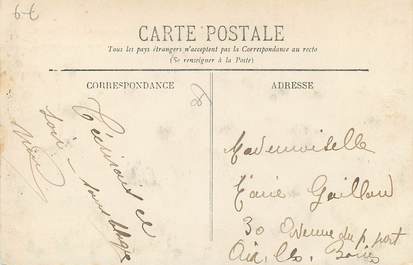 6-€
CARTE POSTALE
Tous les pays étrangers n'acceptent pas la Correspondance au recto
(Se renseigner à la Poste)
CORRESPONDANCE
ADRESSE
8
ce
soir
Mademoiselle
Marie Gaillard
30 Avenue du p. port
Aix. les. Bains